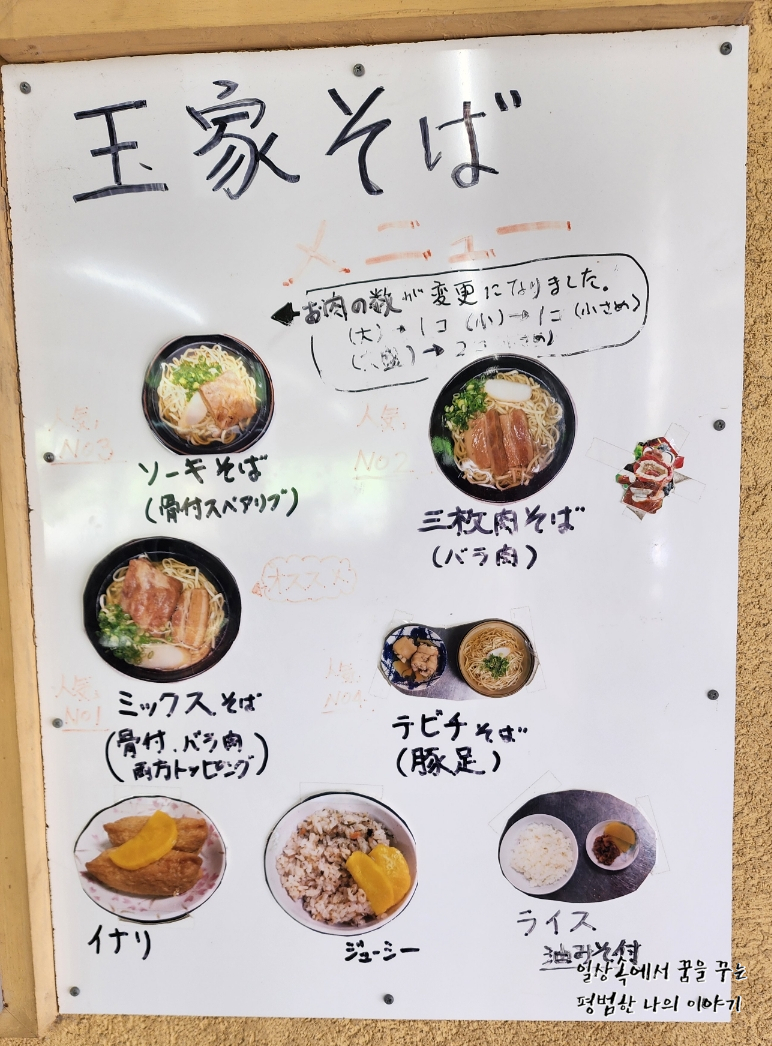 玉家そば
メニュー
お肉の数が変更になりました。
(大)→1コ (小)→1コ(小さめ)
盛)→2コ
人気
No3
ソーキそば
(骨付スペアリブ)
人気
No2
三枚肉そば
(バラ肉)
オススメ!
人気
No1
ミックスそば
(骨付、バラ肉
両方トッピング)
人気
No4
テビチそば
(豚足)
イナリ
ジューシー
ライス
油みそ付
일상속에서 꿈을 꾸는
평범한 나의 이야기